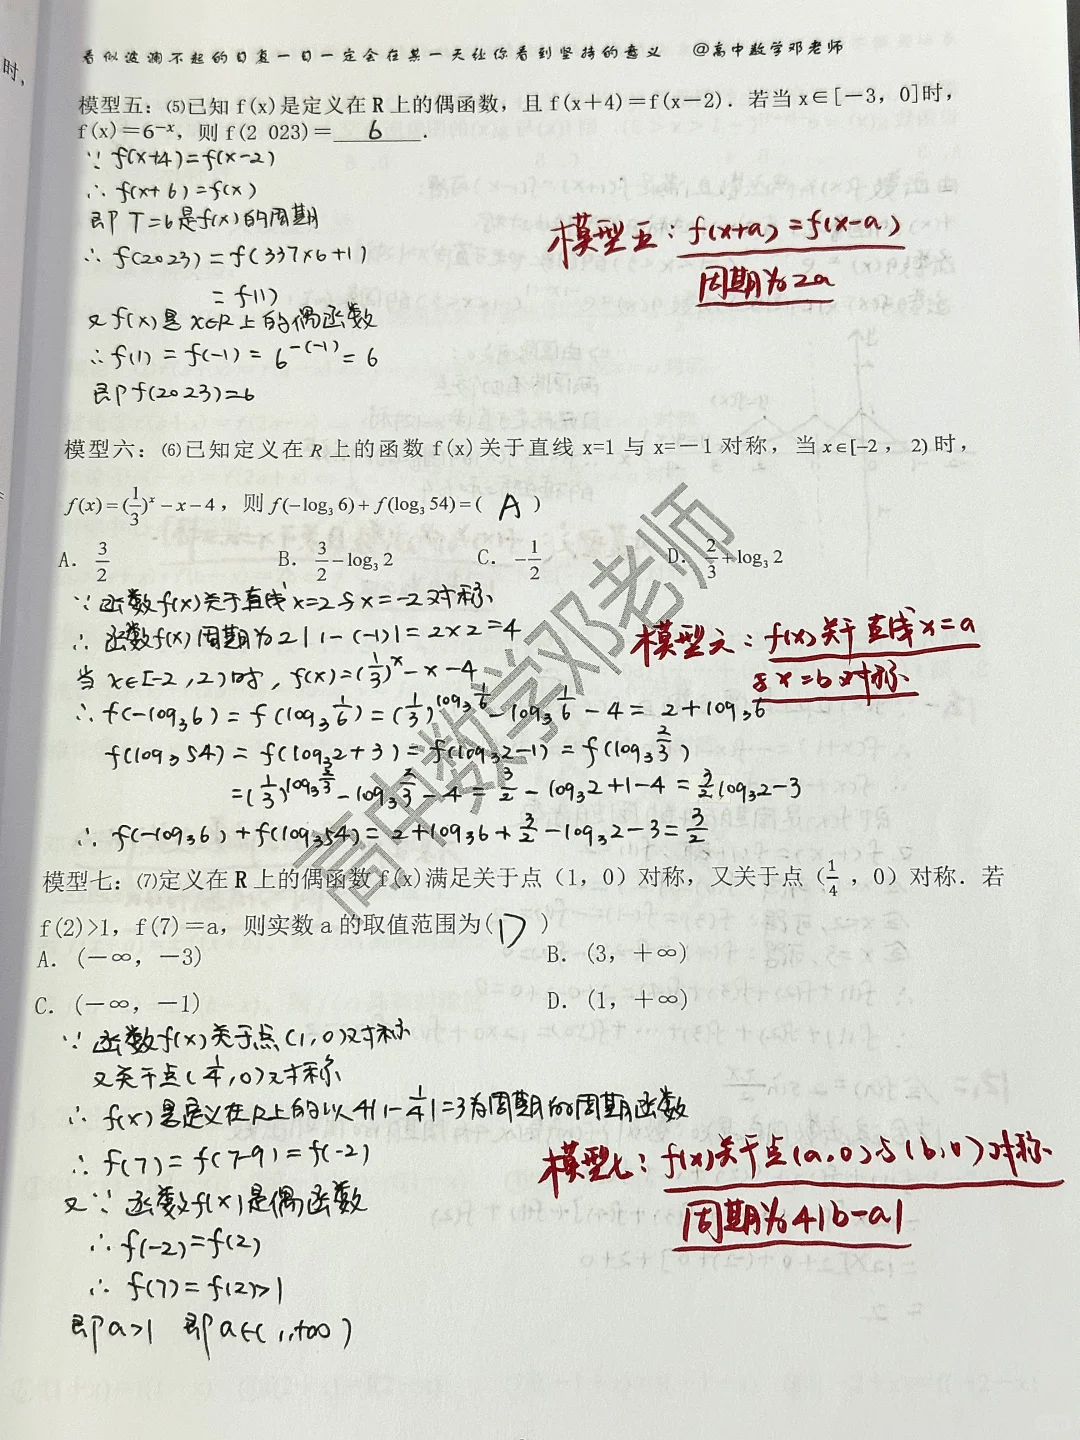 看似波澜不起的日复一日一定会在某一天让你看到坚持的意义 @高中数学邓老师
时,
模型五：⑸已知 f(x)是定义在 R 上的偶函数，且 f(x＋4)＝f(x－2)．若当 x∈[－3，0]时，
f(x)＝6⁻ˣ，则 f(2 023)＝ 6 ．
∵ f(x+4)=f(x-2)
∴ f(x+6)=f(x)
即 T=6是f(x)的周期
∴ f(2023)=f(337×6+1)
=f(1)
又 f(x)是 x∈R 上的偶函数
∴ f(1)=f(-1)=6^{-(-1)}=6
即 f(2023)=6
模型五：f(x+a)=f(x-a)
周期为2a
模型六：⑹已知定义在 R 上的函数 f(x)关于直线 x=1 与 x=－1 对称，当 x∈[−2，2)时，
f(x)=(1/3)^x−x−4，则 f(−log₃6)+f(log₃54)=( A )
A. 3/2 B. 3/2−log₃2 C. −1/2 D. 2/3+log₃2
∵ 函数f(x)关于直线x=2与x=-2对称
∴ 函数f(x)周期为2|1-(-1)|=2×2=4
当 x∈[-2,2)时，f(x)=(1/3)^x-x-4
∴ f(-log₃6)=f(log₃1/6)=(1/3)^{log₃1/6}-log₃1/6-4=2+log₃6
f(log₃54)=f(log₃2+3)=f(log₃2-1)=f(log₃2/3)
=(1/3)^{log₃2/3}-log₃2/3-4=3/2-log₃2+1-4=3/2log₃2-3
∴ f(-log₃6)+f(log₃54)=2+log₃6+3/2-log₃2-3=3/2
模型六：f(x)关于直线x=a
与x=b对称
模型七：⑺定义在 R 上的偶函数 f(x)满足关于点（1，0）对称，又关于点（1/4，0）对称．若
f(2)>1，f(7)＝a，则实数 a 的取值范围为( D )
A．(－∞，－3) B．(3，＋∞)
C．(－∞，－1) D．(1，＋∞)
∵ 函数f(x)关于点(1,0)对称
又关于点(1/4,0)对称
∴ f(x)是定义在R上的以4|1-1/4|=3为周期的周期函数
∴ f(7)=f(7-9)=f(-2)
又∵ 函数f(x)是偶函数
∴ f(-2)=f(2)
∴ f(7)=f(2)>1
即a>1 即a∈(1,+∞)
模型七：f(x)关于点(a,0)与(b,0)对称
周期为4|b-a|
高中数学邓老师